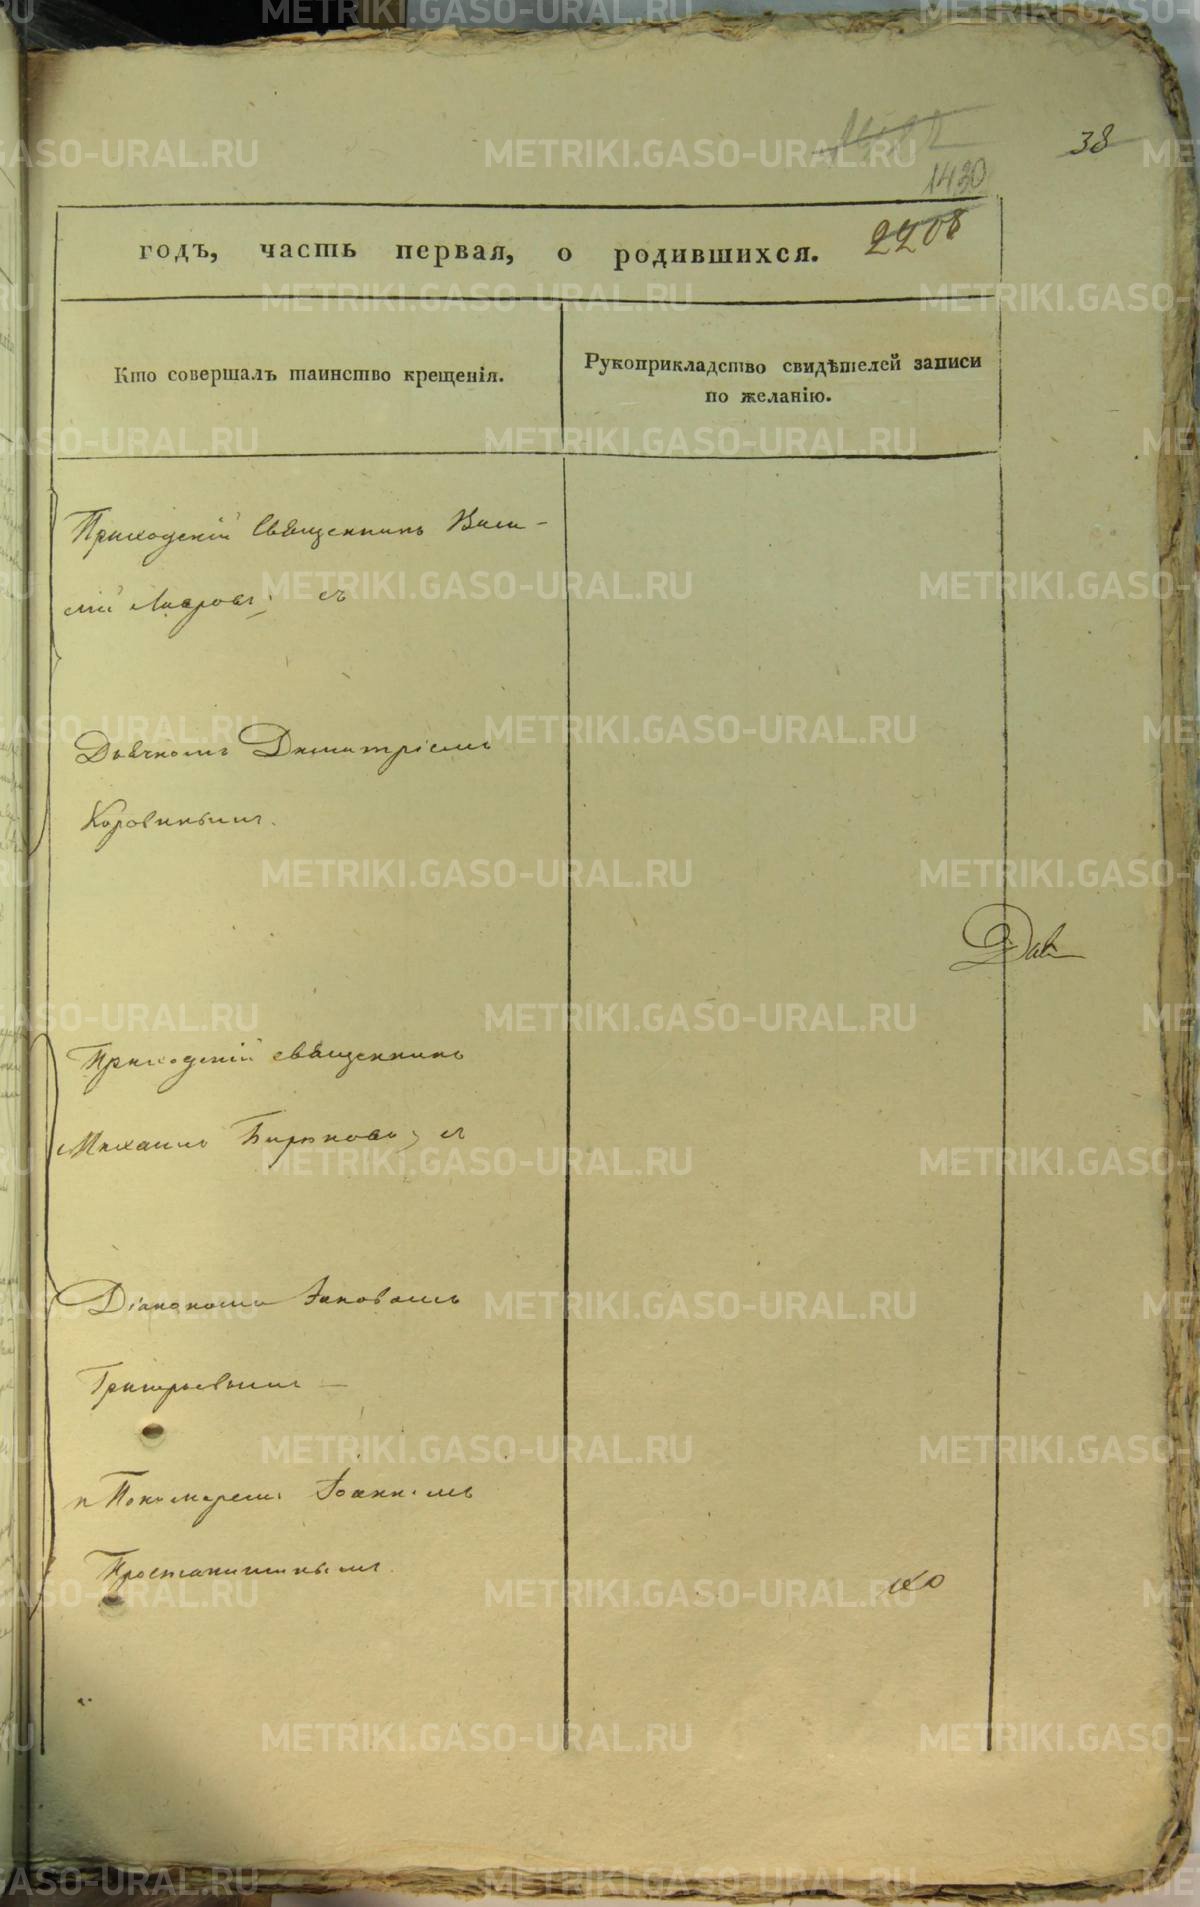 38
1430
2208
годъ, часть первая, о родившихся.
Кто совершалъ таинство крещенія.
Рукоприкладство свидѣтелей записи
по желанію.
Приходскій Священникъ Васи-
лій Лавровъ; съ
Дьячкомъ Димитріемъ
Коровинымъ.
Приходскій священникъ
Михаилъ Бирюковъ, съ
Діакономъ Іаковомъ
Григорьевымъ —
и Пономаремъ Іоанномъ
METRIKI.GASO-URAL.RU